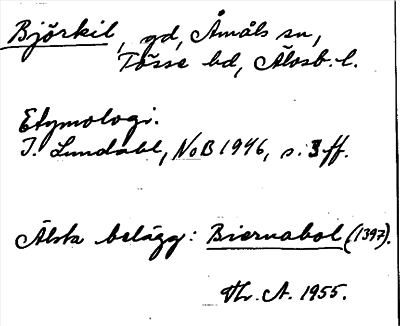 Björkil, gd, Åmåls sn,
Tösse hd, Älvsb. l.
Etymologi.
I. Lundahl, NoB 1946, s. 3 ff.
Älsta belägg: Biernabol (1397).
Th. A. 1955.